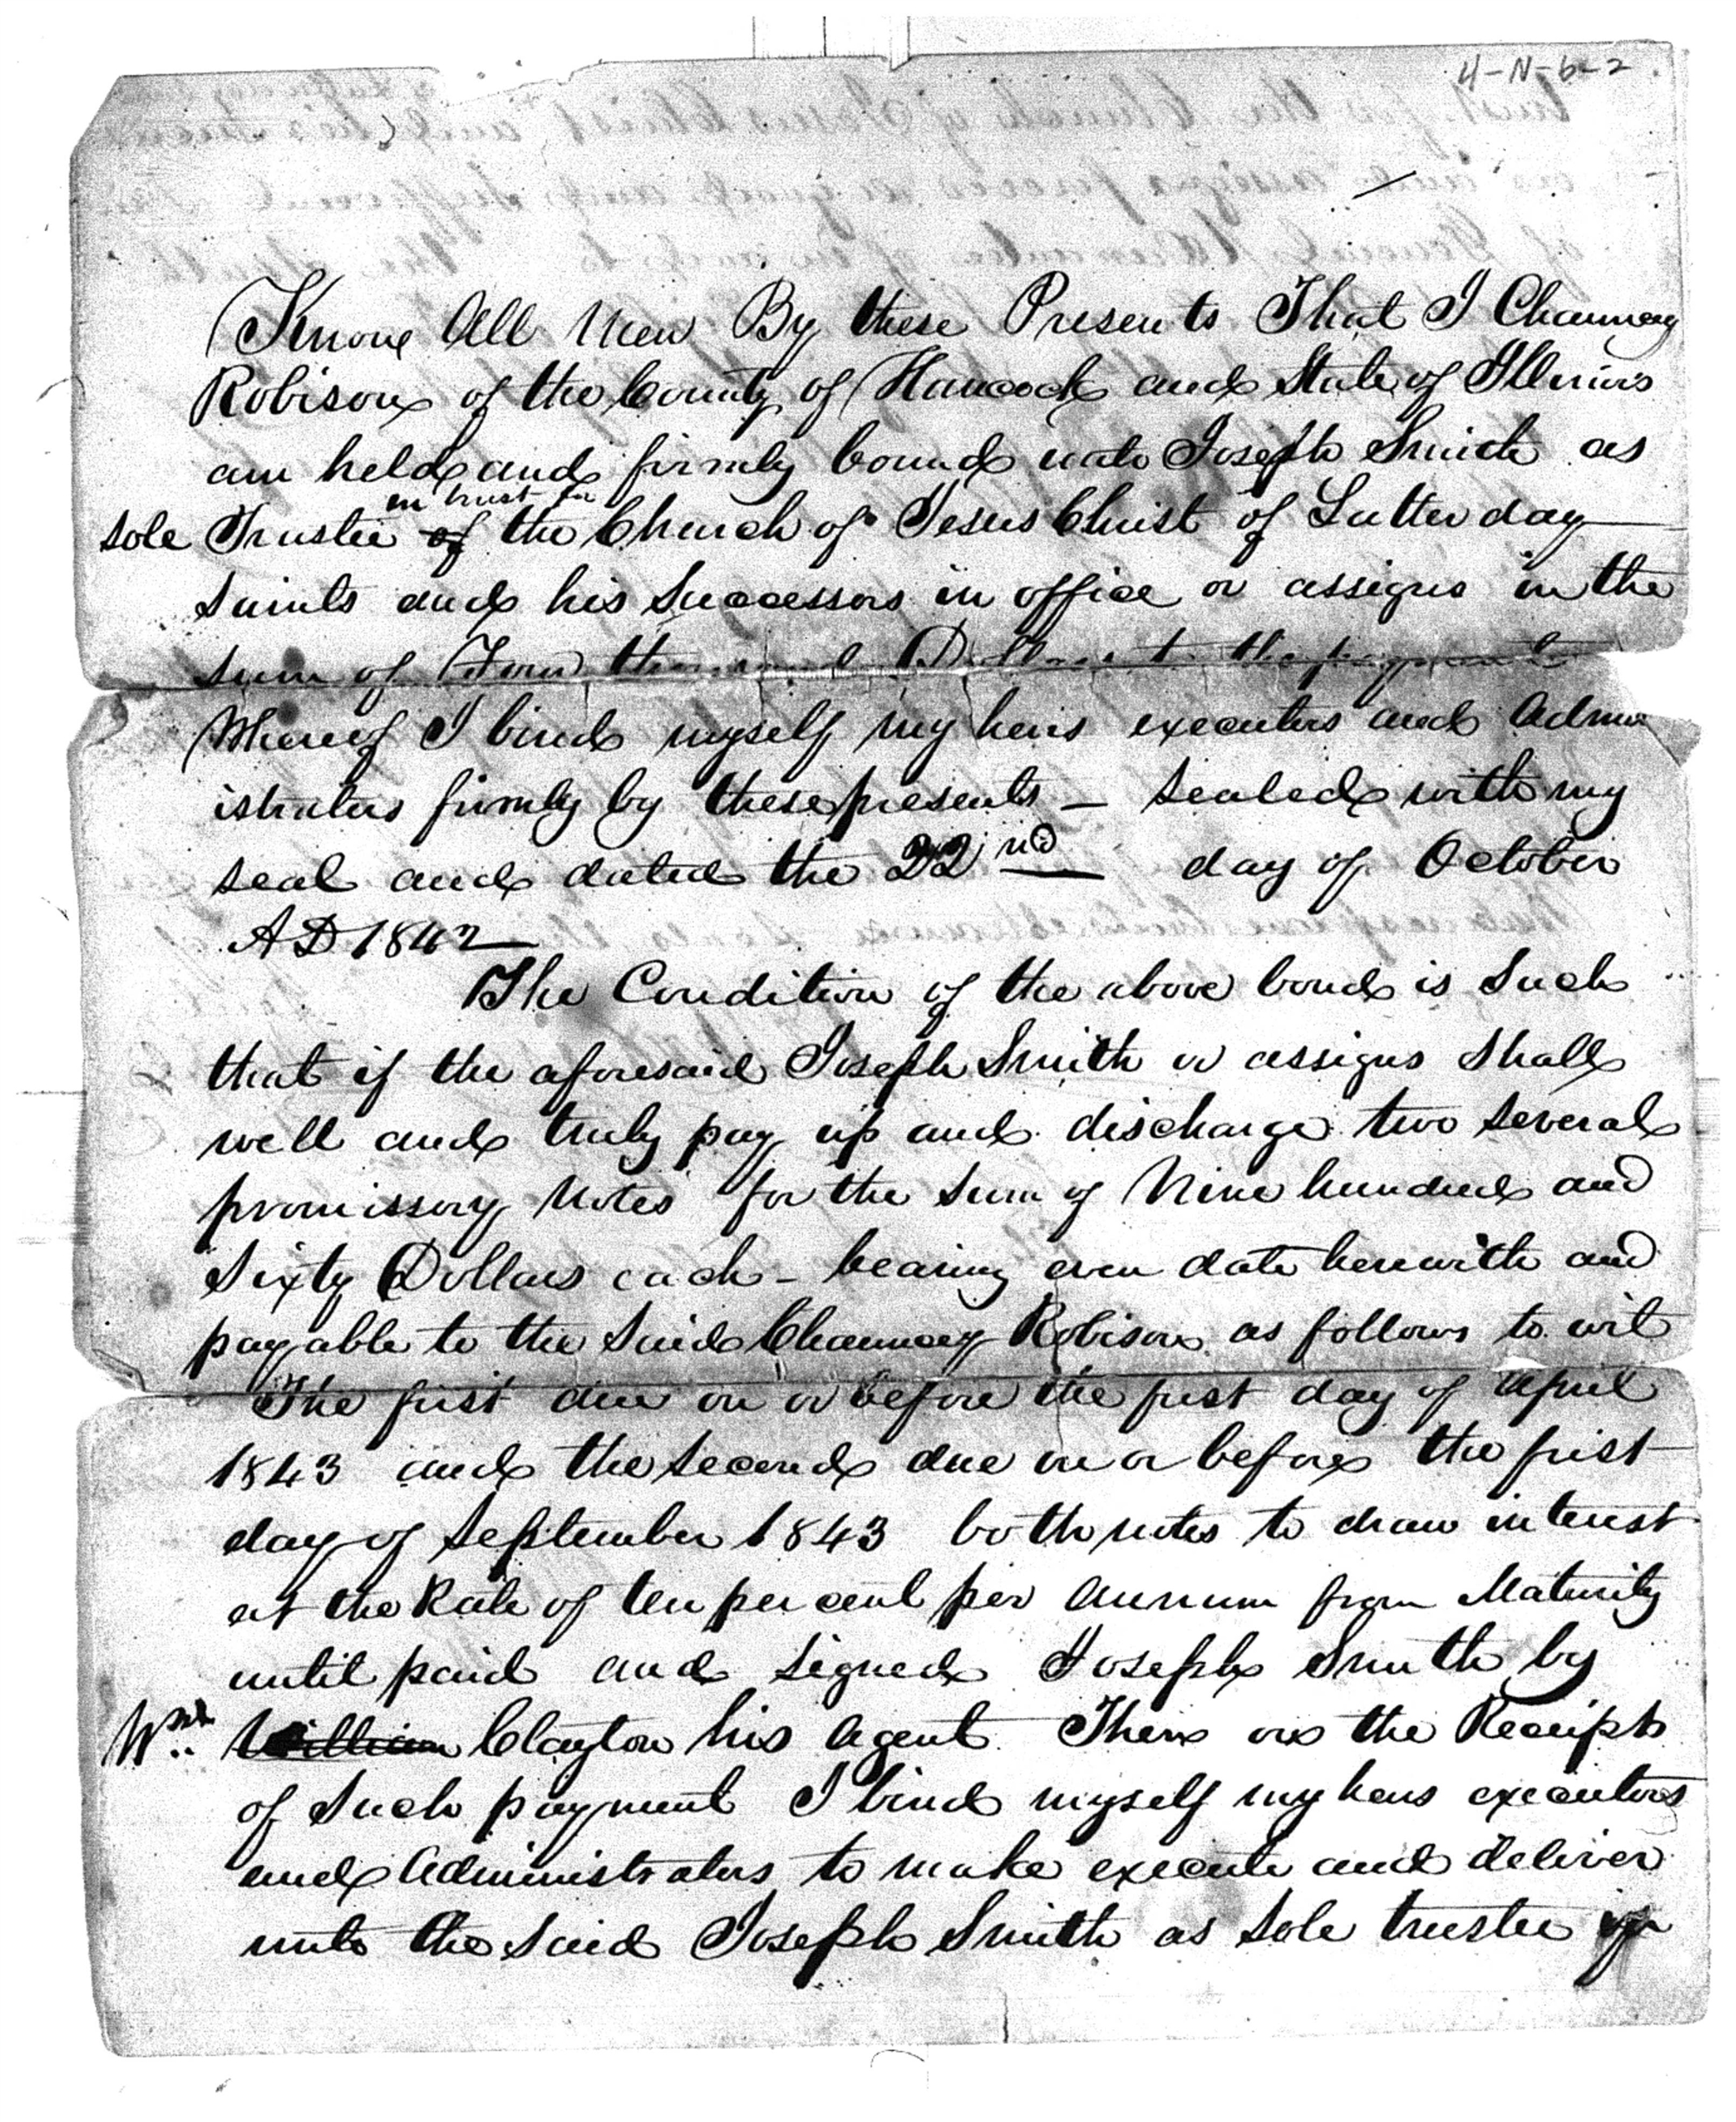 4-N-6-2
Know All Men By these Presents That I Chauncey
Robison of the County of Hancock and State of Illinois
am held and firmly bound unto Joseph Smith as
in trust for
sole Trustee of the Church of Jesus Christ of Latter day
Saints and his Successors in office or assigns in the
sum of Four thousand Dollars to the payment
Whereof I bind myself my heirs executors and Admin
istrators firmly by these presents — Sealed with my
seal and dated the 22nd day of October
AD 1842
The Condition of the above bond is Such
that if the aforesaid Joseph Smith or assigns Shall
well and truly pay up and discharge two Several
promissory Notes for the Sum of Nine hundred and
Sixty Dollars each - bearing even date herewith and
payable to the Said Chauncey Robison as follows to wit
The first due on or before the first day of April
1843 and the Second due on or before the first
day of September 1843 both notes to draw interest
at the Rate of ten per cent per Annum from Maturity
until paid and signed Joseph Smith by
Wm. William Clayton his Agent Then on the Receipt
of Such payment I bind myself my heirs executors
and Administrators to make execute and deliver
unto the Said Joseph Smith as Sole trustee in